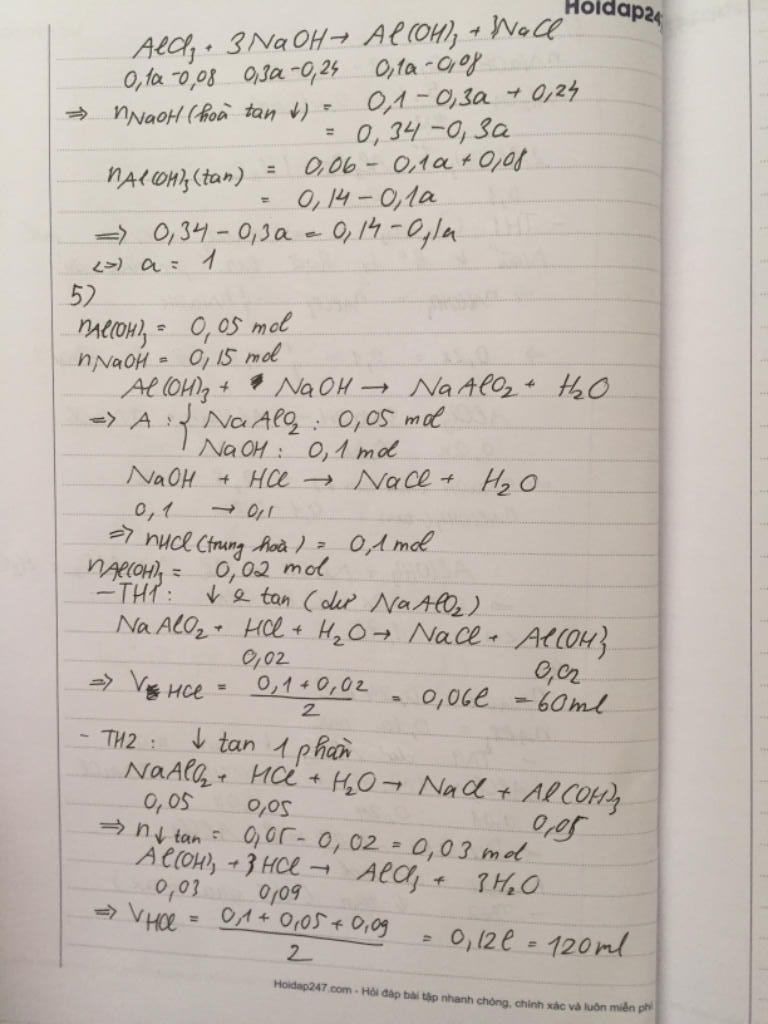 Hoidap247
AlCl₃ + 3NaOH → Al(OH)₃ + 3NaCl
0,1a-0,08 0,3a-0,24 0,1a-0,08
⇒ nNaOH (hoà tan ↓) = 0,1 - 0,3a + 0,24
= 0,34 - 0,3a
nAl(OH)₃(tan) = 0,06 - 0,1a + 0,08
= 0,14 - 0,1a
⇒ 0,34 - 0,3a = 0,14 - 0,1a
<=> a = 1
5)
nAl(OH)₃ = 0,05 mol
nNaOH = 0,15 mol
Al(OH)₃ + NaOH → NaAlO₂ + H₂O
⇒ A : { NaAlO₂ : 0,05 mol
NaOH : 0,1 mol
NaOH + HCl → NaCl + H₂O
0,1 → 0,1
⇒ nHCl (trung hoà) = 0,1 mol
nAl(OH)₃ = 0,02 mol
- TH1 : ↓ k tan (dư NaAlO₂)
NaAlO₂ + HCl + H₂O → NaCl + Al(OH)₃
0,02 0,02
⇒ V HCl = (0,1 + 0,02)/2 = 0,06l = 60ml
- TH2 : ↓ tan 1 phần
NaAlO₂ + HCl + H₂O → NaCl + Al(OH)₃
0,05 0,05 0,05
⇒ n↓ tan = 0,05 - 0,02 = 0,03 mol
Al(OH)₃ + 3HCl → AlCl₃ + 3H₂O
0,03 0,09
⇒ VHCl = (0,1 + 0,05 + 0,09)/2 = 0,12l = 120ml
Hoidap247.com - Hỏi đáp bài tập nhanh chóng, chính xác và luôn miễn phí